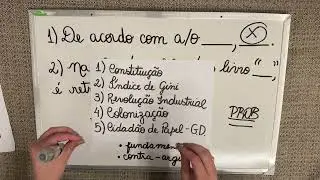 1) De acordo com a/o ___, X
2) Na livro "___"
é ret
1) Constituição
2) Índice de Gini
3) Revolução Industrial
4) Colonização
5) Cidadão de Papel - GD.
PROB
• fundament
• contra-arg